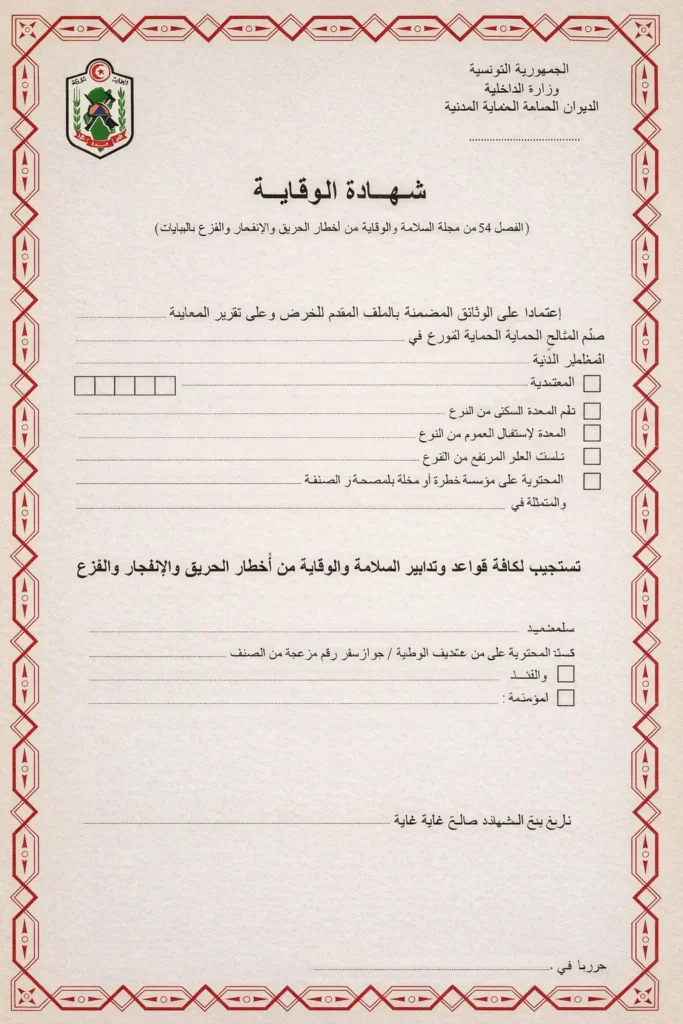 الجمهورية التونسية
وزارة الداخلية
الديوان الحماية المدنية
شهادة الوقاية
(الفصل 54 من مجلة السلامة والوقاية من أخطار الحريق والإنفجار والفزع بالبيايات)
إعتمادا على الوثائق المضمنة بالملف المقدم للخرض وعلى تقرير المعاينة
المثالح الحماية الحماية لتورع في
المعتمدية
المعدة السكنى من النوع
المعدة لإستقبال العموم من النوع
العلر المرتفع من
المحتوية على مؤسسة خطرة أو مخلة الصنفة
والمتمثلة في
تستجيب لكافة قواعد وتدابير السلامة والوقاية من أخطار الحريق والإنفجار والفزع
المحتوية على من الوطنية / جواز سفر رقم مزعجة من الصنف
صالح غاية غاية
في